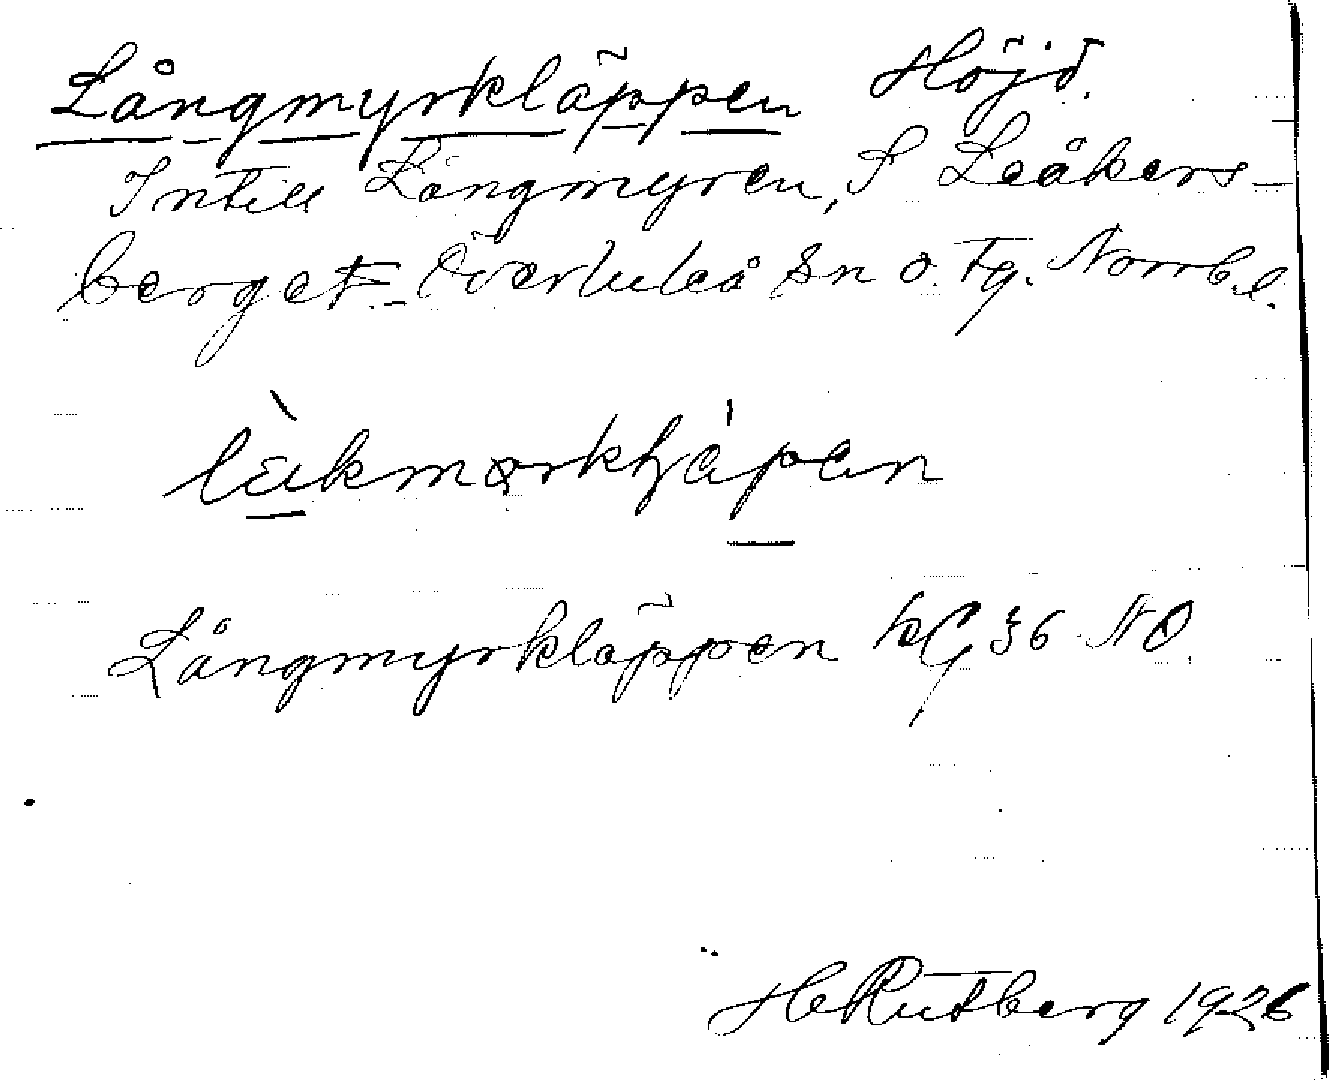 Långmyrkläppen Höjd.
Intill Långmyren, S Leåkers-
berget. Överluleå Sn o. Tg. Norrb. l.
Långmyrkläppen kG 36 NO.
H Rutberg 1926